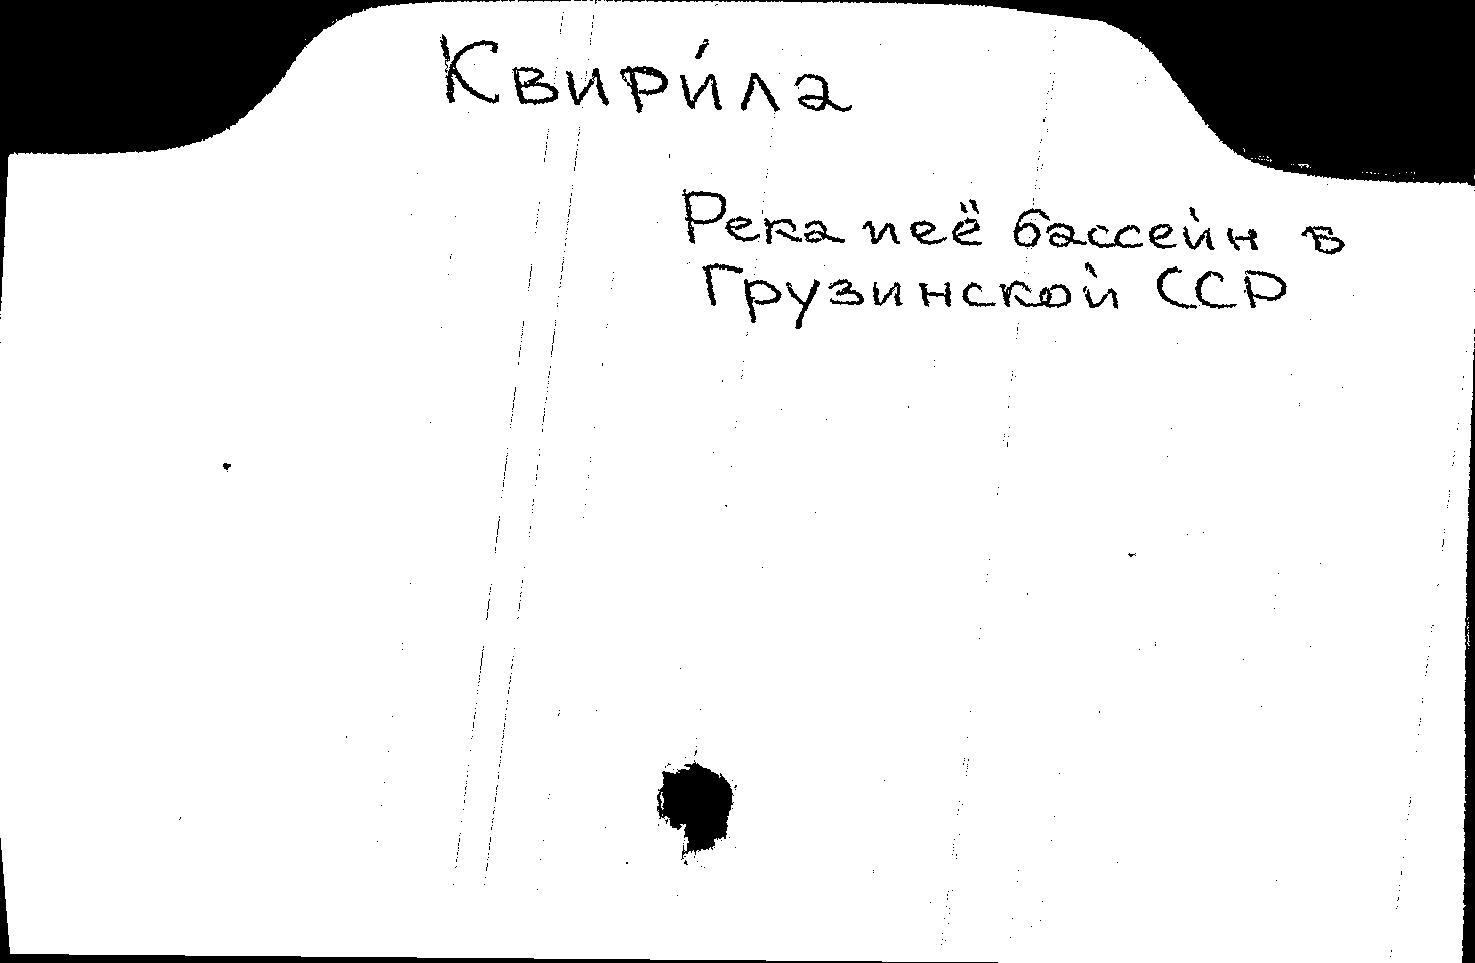 Квири́ла
Река и её бассейн в
Грузинской ССР